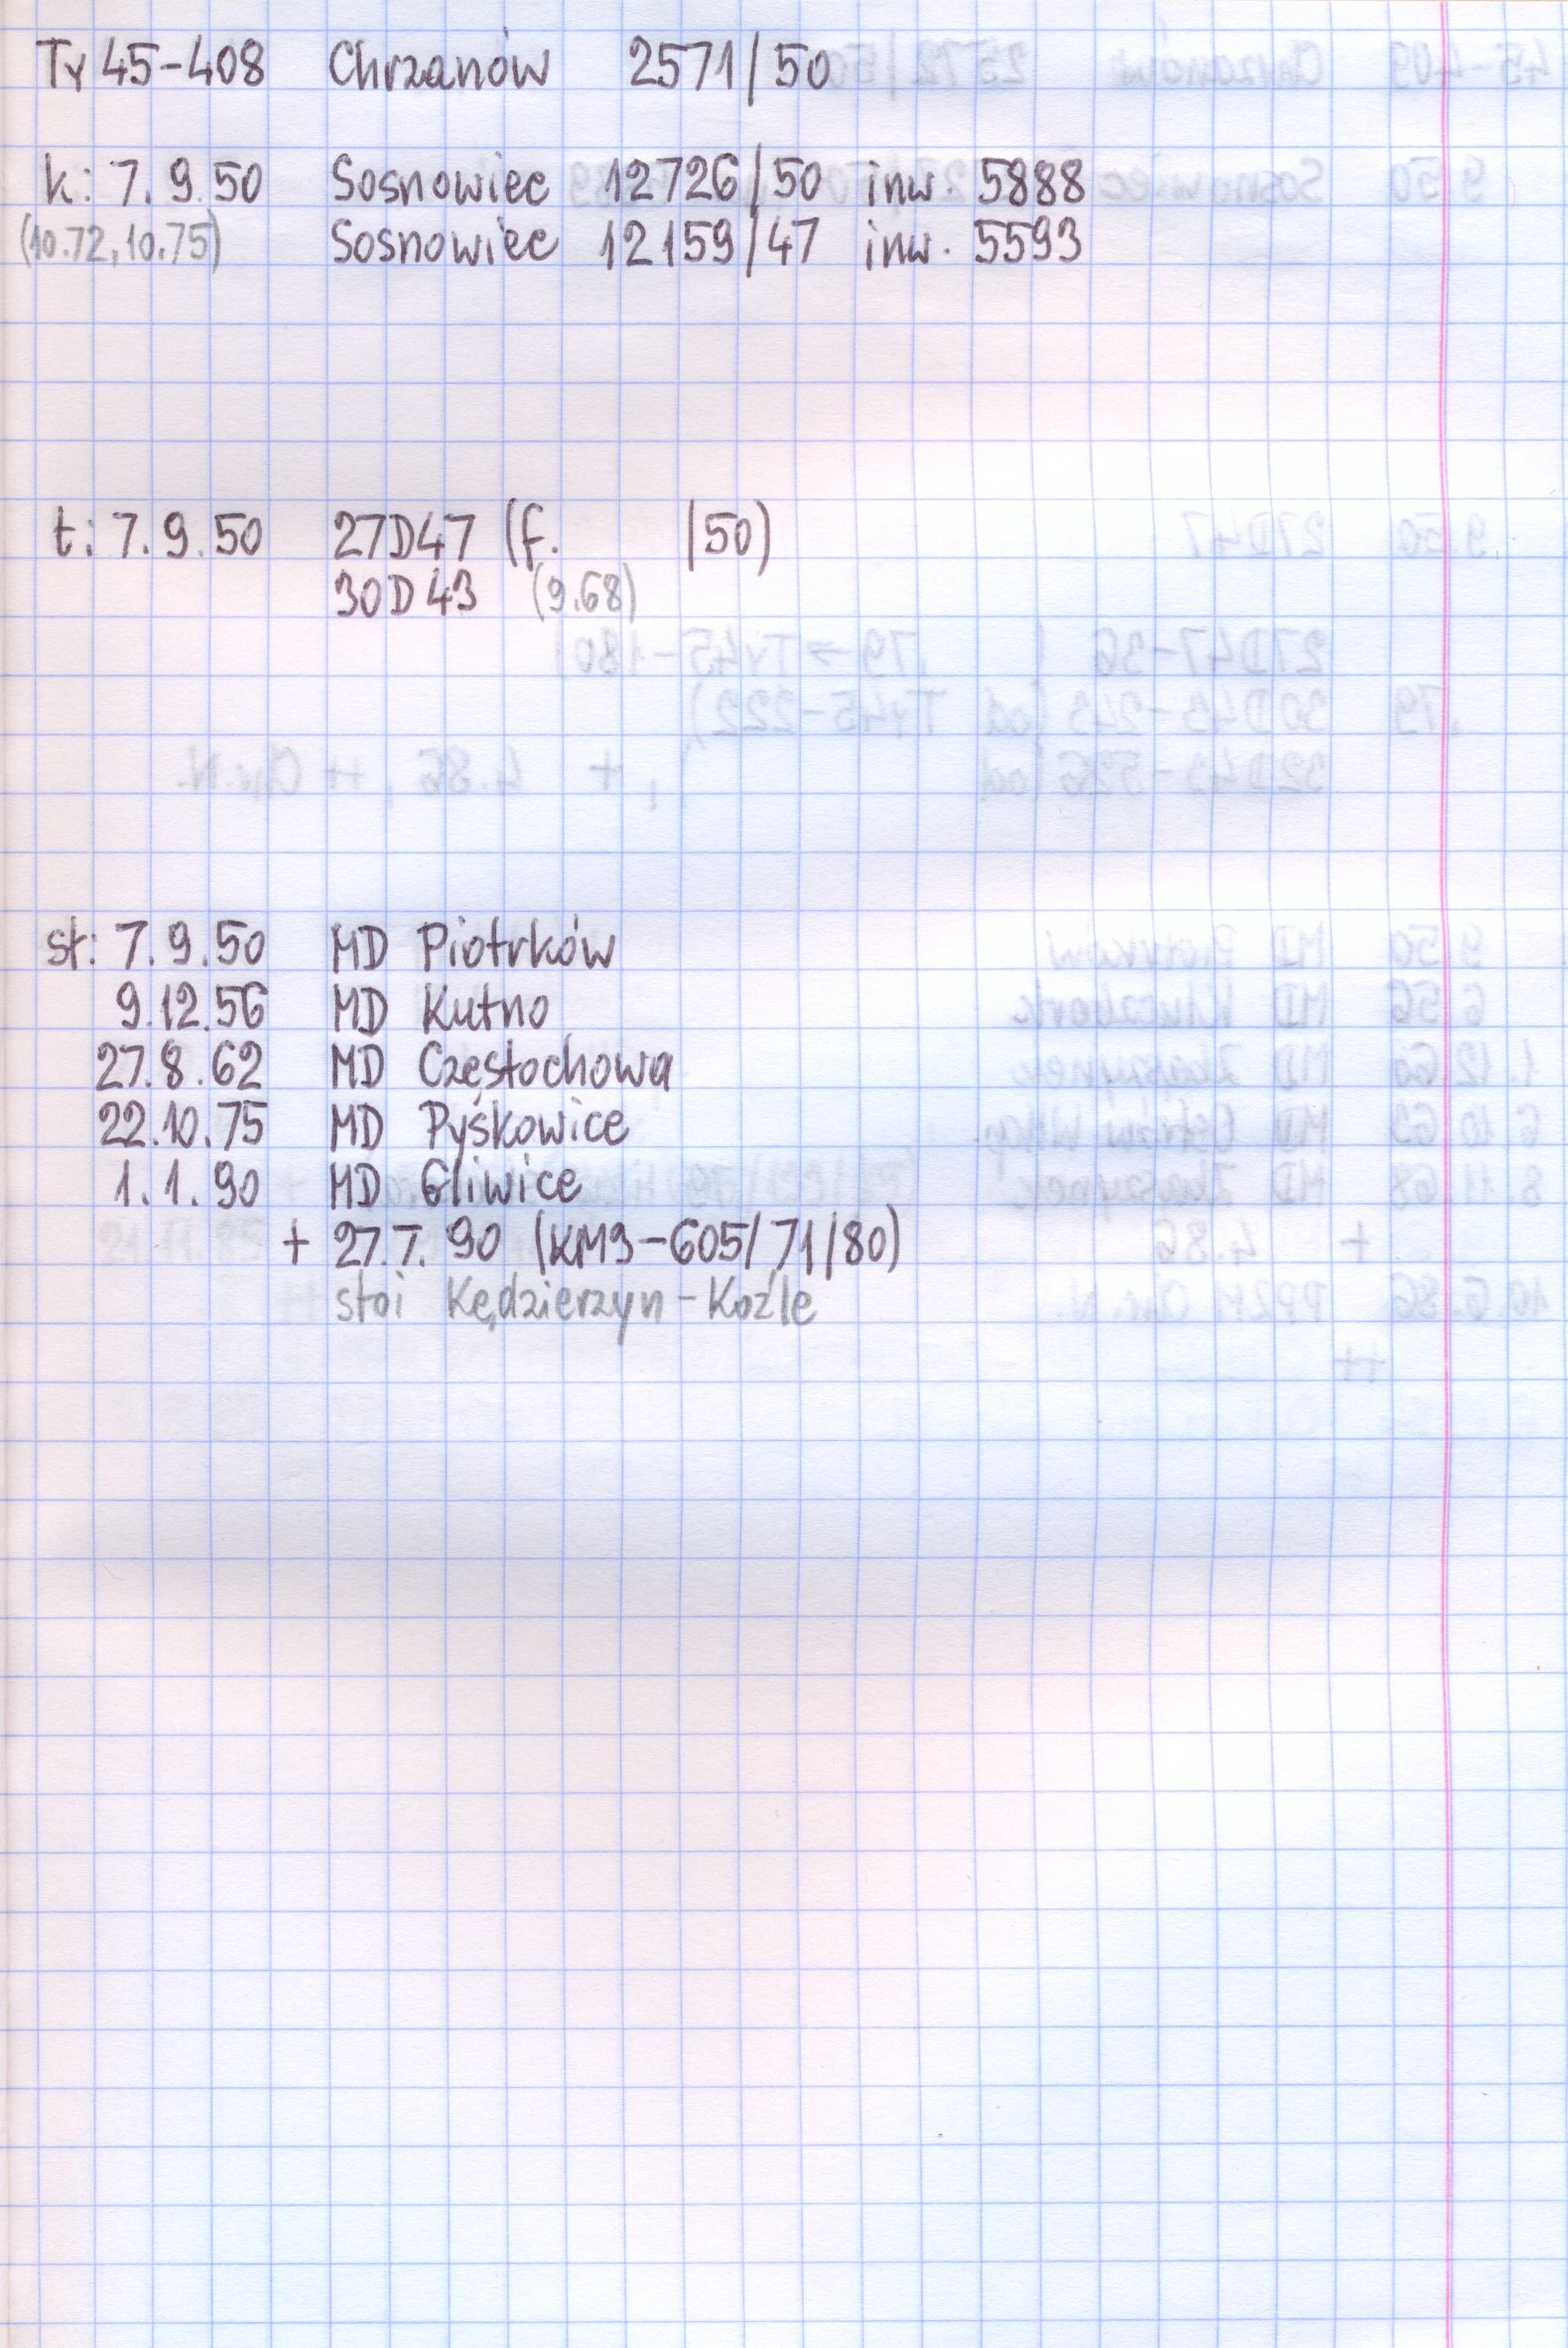 Ty45-408 Chrzanów 2571/50
k: 7.9.50 Sosnowiec 12726/50 inw. 5888
(10.72, 10.75) Sosnowiec 12159/47 inw. 5593
t: 7.9.50 27D47 (f. /50)
30D43 (9.68)
st: 7.9.50 MD Piotrków
9.12.56 MD Kutno
27.8.62 MD Częstochowa
22.10.75 MD Pyskowice
1.1.90 MD Gliwice
+ 27.7.90 (KM9-605/71/80)
stoi Kędzierzyn-Koźle